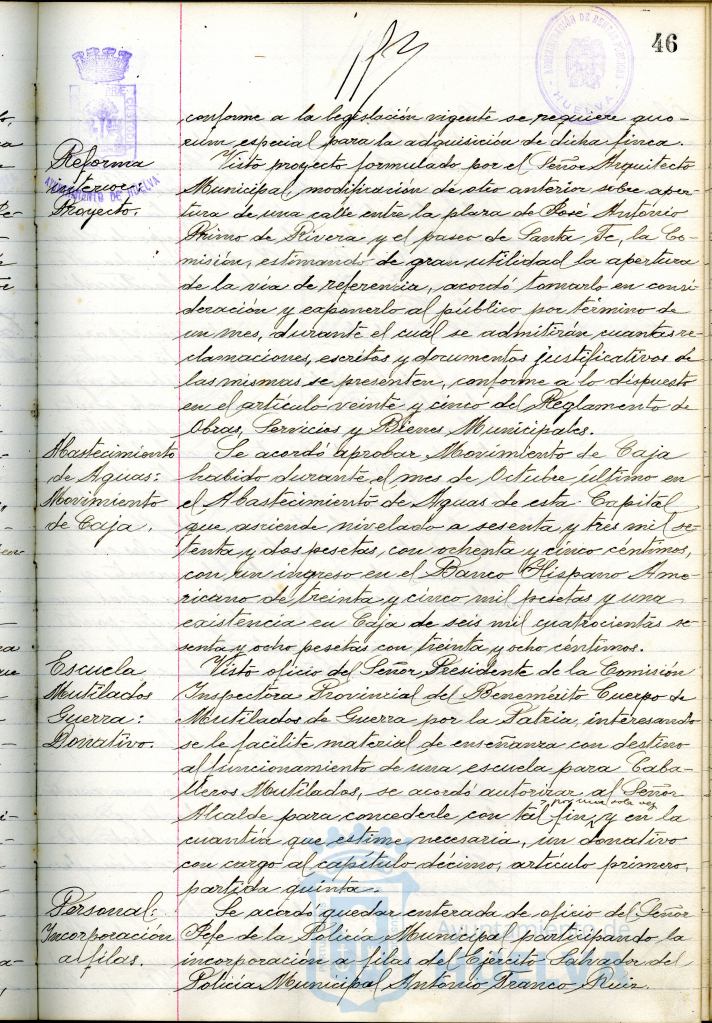 46
ADMINISTRACIÓN DE RENTAS PÚBLICAS
HUELVA
AYUNTAMIENTO DE HUELVA
conforme a la legislación vigente se requiere quo-
rum especial para la adquisición de dicha finca.
Reforma
interior:
Proyecto.
Visto proyecto formulado por el Señor Arquitecto
Municipal, modificación de otro anterior sobre aper
tura de una calle entre la plaza de José António
Primo de Rivera y el paseo de Santa Fe, la Co-
misión, estimando de gran utilidad la apertura
de la vía de referencia, acordó tomarlo en consi
deración y exponerlo al público por término de
un mes, durante el cual se admitirán cuantas re
clamaciones, escritos y documentos justificativos de
las mismas se presenten, conforme a lo dispuesto
en el artículo veinte y cinco del Reglamento de
Obras, Servicios y Bienes Municipales.
Abastecimiento
de Aguas:
Movimiento
de Caja.
Se acordó aprobar Movimiento de Caja
habido durante el mes de Octubre último en
el Abastecimiento de Aguas de esta Capital
que asciende nivelado a sesenta y tres mil se-
tenta y dos pesetas, con ochenta y cinco céntimos,
con un ingreso en el Banco Hispano Ame-
ricano de treinta y cinco mil pesetas y una
existencia en Caja de seis mil cuatrocientas se-
senta y ocho pesetas con treinta y ocho céntimos.
Escuela
Mutilados
Guerra:
Donativo.
Visto oficio del Señor Presidente de la Comisión
Inspectora Provincial del Benemérito Cuerpo de
Mutilados de Guerra por la Patria, interesando
se le facilite material de enseñanza con destino
al funcionamiento de una escuela para Caba-
lleros Mutilados, se acordó autorizar al Señor
por una sola vez
Alcalde para concederle con tal fin, y en la
cuantía que estime necesaria, un donativo
con cargo al capítulo décimo, artículo primero,
partida quinta.
Personal:
Incorporación
a filas.
Se acordó quedar enterada de oficio del Señor
Jefe de la Policía Municipal participando la
incorporación a filas del Ejército Salvador del
Policía Municipal António Franco Ruiz.
Ayuntamiento de
HUELVA